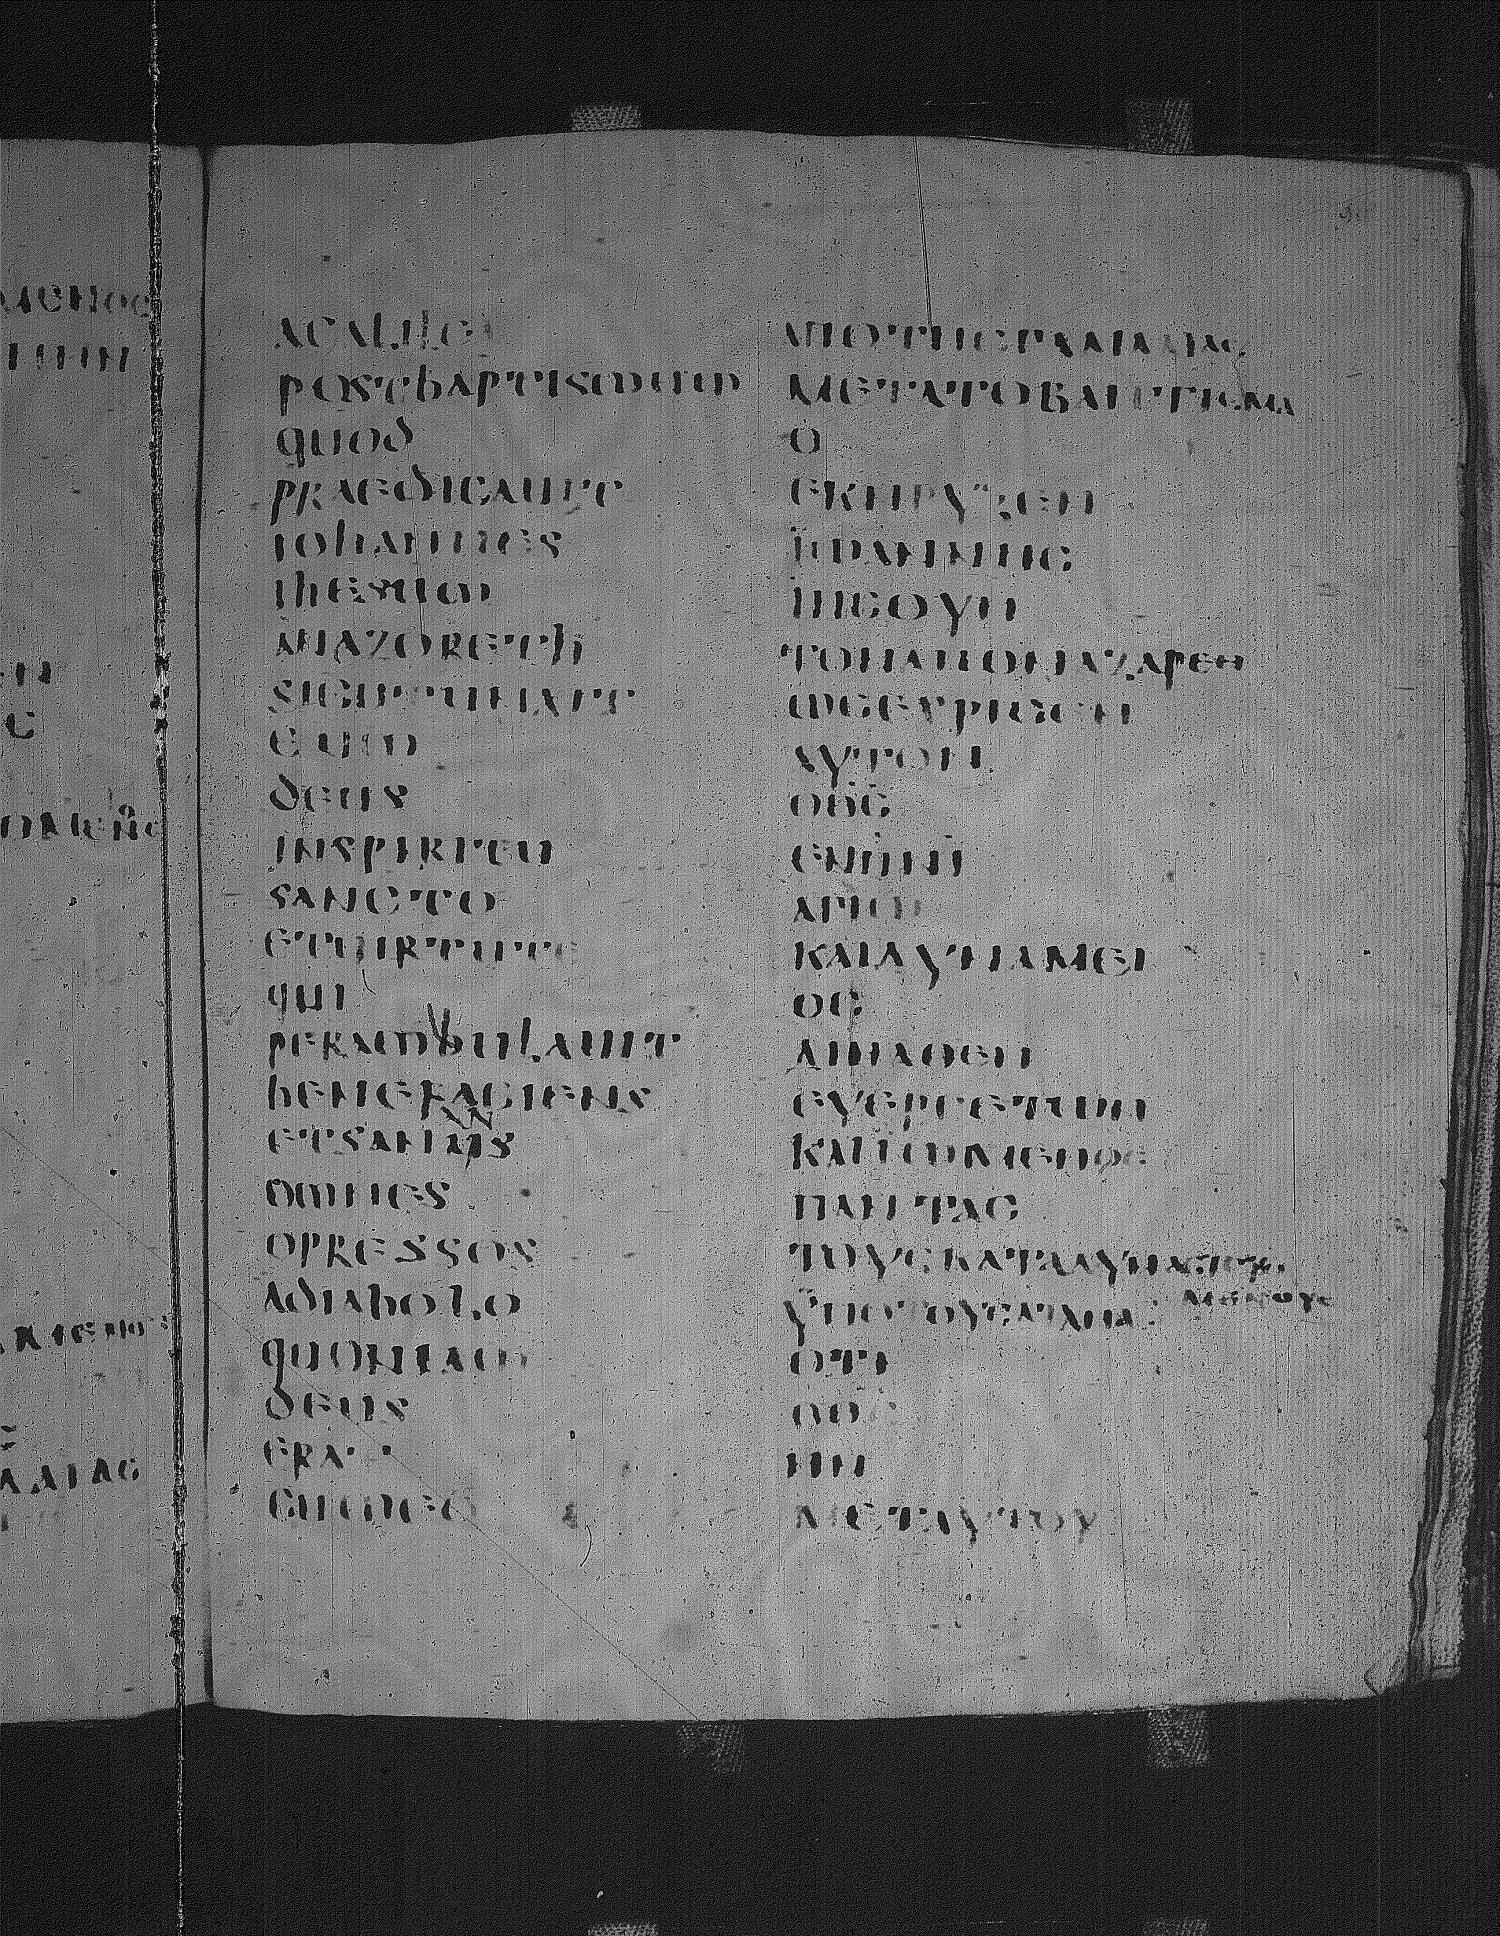 AGALILEA
POSTBAPTISMUM
QUOD
PRAEDICAUIT
IOHANNES
IHESUM
ANAZORETH
SICUTUNXIT
EUM
DEUS
INSPIRITU
SANCTO
ETUIRTUTE
QUI
PERAMBULAUIT
BENEFACIENS
ETSANANS
OMNES
OPRESSOS
ADIABOLO
QUONIAM
DEUS
ERAT
CUMEO
ΑΠΟΤΗСΓΑΛΙΛΑΙΑС
ΜΕΤΑΤΟΒΑΠΤΙСΜΑ
Ο
ΕΚΗΡΥΞΕΝ
ΪΩΑΝΝΗС
ΙΗСΟΥΝ
ΤΟΝΑΠΟΝΑΖΑΡΕΘ
ΩСΕΧΡΙСΕΝ
ΑΥΤΟΝ
ΟΘС
ΕΝΠΝΙ
ΑΓΙΩ
ΚΑΙΔΥΝΑΜΕΙ
ΟС
ΔΙΗΛΘΕΝ
ΕΥΕΡΓΕΤΩΝ
ΚΑΙΙΩΜΕΝΟС
ΠΑΝΤΑС
ΤΟΥСΚΑΤΑΔΥΝΑСΤΕΥΟ
ΜΕΝΟΥС
ΫΠΟΤΟΥ
ΟΤΙ
ΟΘС
ΗΝ
ΜΕΤΑΥΤΟΥ